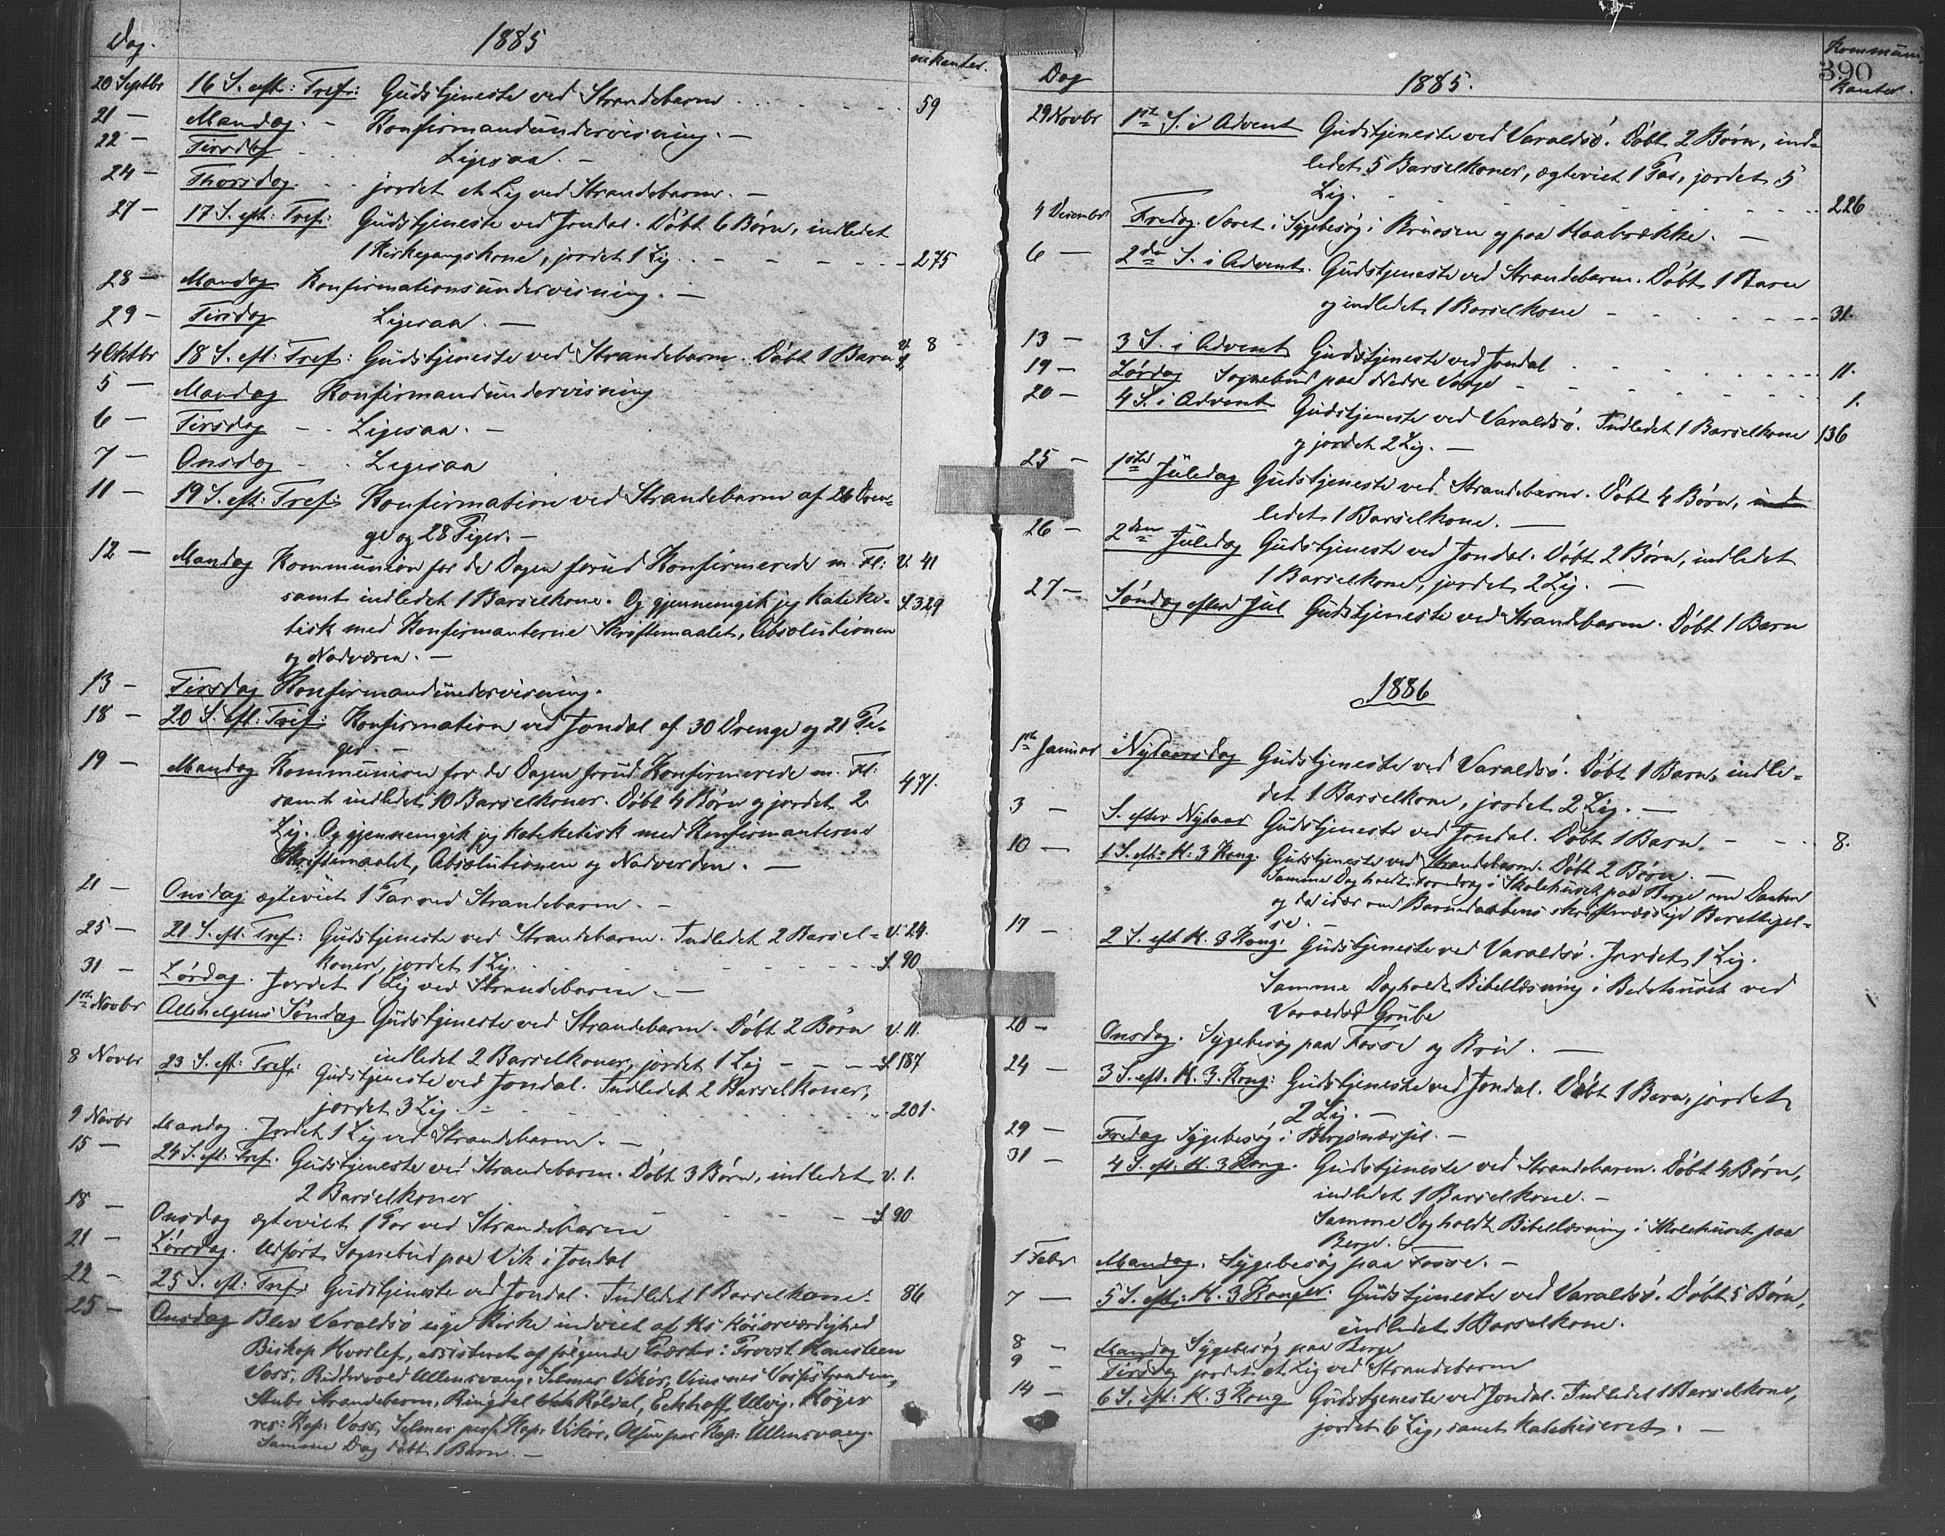 Dag. 1885 nikanter.
20 Septbr 16 S. eft: Tref: Gudstjeneste ved Strandebarm 59
21 — Mandag. - Konfirmandundervisning. —
22 — Tirsdag Ligesaa. —
24 — Thorsdag. jordet et Lig ved Strandebarm. —
27 — 17 S. eft: Tref: Gudstjeneste ved Jondal. Døbt 6 Børn, indledet
1 Kirkegangskone, jordet 1 Lig 275
28 — Mandag Konfirmationsundervisning. —
29 — Tirsdag Ligesaa. —
4 Oktbr 18 S. eft: Tref: Gudstjeneste ved Strandebarm. Døbt 1 Barn 8
5 — Mandag Konfirmandundervisning
6 — Tirsdag - - Ligesaa. —
7 — Onsdag - - Ligesaa
11 — 19 S. eft: Tref: Konfirmation ved Strandebarm af 26 Dren-
ge og 28 Piger. —
12 — Mandag Kommunion for de Dagen forud Konfirmerede m. Fl: V. 41
samt indledet 1 Barselkone. Og gjennemgik jeg kateke- S. 329
tisk med Konfirmanterne Skriftemaalet, Absolutionen
og Nadveren. —
13 — Tirsdag Konfirmandundervisning.
18 — 20 S. eft: Tref: Konfirmation ved Jondal af 30 Drenge og 21 Pi-
ger —
19 — Mandag Kommunion for de Dagen forud Konfirmerede m. Fl: 471.
samt indledet 10 Barselkoner. Døbt 4 Børn og jordet 2
Lig. Og gjennemgik jeg kateketisk med Konfirmanterne
Skriftemaalet, Absolutionen og Nadverden. —
21 — Onsdag ægteviet 1 Par ved Strandebarm. —
25 — 21 S. eft: Tref: Gudstjeneste ved Strandebarm. Indledet 2 Barsel- V. 24.
koner, jordet 1 Lig. S. 90
31 — Lørdag. Jordet 1 Lig ved Strandebarm. —
1ste Novbr Allehelgens Søndag Gudstjeneste ved Strandebarm. Døbt 2 Børn V. 11.
indledet 2 Barselkoner, jordet 1 Lig — S. 187
8 Novbr 23 S. eft: Tref: Gudstjeneste ved Jondal. Indledet 2 Barselkoner,
jordet 3 Lig. 201.
9 Novbr Mandag. Jordet 1 Lig ved Strandebarm. —
15 — 24 S. eft: Tref. Gudstjeneste ved Strandebarm. Døbt 3 Børn, indledet V. 1.
2 Barselkoner S. 90
18 — Onsdag ægteviet 1 Par ved Strandebarm
21 — Lørdag. Udført Sognebud paa Vik i Jondal
22 — 25 S. eft: Tref: Gudstjeneste ved Jondal. Indledet 1 Barselkone. 86
25 — Onsdag Blev Varaldsø nye Kirke indviet af Hs Høiærværdighed
Biskop Hvoslef, assisteret af følgende Præster: Provst Hansteen
Voss, Riddervold Ullensvang, Selmer Vikør, Vinsnes Vossestranden,
Stub Strandebarm, Ringdal Røldal, Eckhoff Ulvig, Høyer
res: Kap: Voss, Selmer pers. Kap: Vikør, Olsen pers Kap: Ullensvang.
Samme Dag døbt 1 Barn. —
Dag 1885. Kommuni-
390
kanter.
29 Novbr 1ste S. i Advent Gudstjeneste ved Varaldsø. Døbt 2 Børn, ind-
ledet 5 Barselkoner, ægteviet 1 Par, jordet 5
Lig. 226
4 Decembr Fredag. Været i Sygebesøg i Bruosen og paa Haabrække. —
6 — 2den S. i Advent. Gudstjeneste ved Strandebarm. Døbt 1 Barn
og indledet 1 Barselkone 31.
13 — 3 S. i Advent Gudstjeneste ved Jondal 11.
19 — Lørdag Sognebud paa Nedre Vaage 1.
20 — 4 S. i Advent Gudstjeneste ved Varaldsø. Indledet 1 Barselkone 136
og jordet 2 Lig. —
25 — 1ste Juledag Gudstjeneste ved Strandebarm. Døbt 4 Børn, ind-
ledet 1 Barselkone. —
26 — 2den Juledag Gudstjeneste ved Jondal. Døbt 2 Børn, indledet
1 Barselkone, jordet 2 Lig. —
27 — Søndag efter Jul Gudstjeneste ved Strandebarm. Døbt 1 Barn
1886
1ste Januar Nytaarsdag Gudstjeneste ved Varaldsø. Døbt 1 Barn, indle-
det 1 Barselkone, jordet 2 Lig. —
3 — S. efter Nytaar Gudstjeneste ved Jondal. Døbt 1 Barn. 8.
10 — 1 S. eft: H. 3 Kong. Gudstjeneste ved Strandebarm. Døbt 2 Børn. —
Samme Dag holdt Foredrag i Skolehuset paa Berge om Daaben
og da især om Barnedaabens skriftmæssige Berettigel-
se. —
17 — 2 S. eft H. 3 Kong: Gudstjeneste ved Varaldsø. Jordet 1 Lig.
Samme Dag holdt Bibellæsning i Bedehuset ved
Varaldsø Grube
20 — Onsdag. Sygebesøg paa Fosse og Bru. —
24 — 3 S. eft. H. 3 Kong: Gudstjeneste ved Jondal. Døbt 1 Barn, jordet
2 Lig. —
29 — Fredag Sygebesøg i Bergsnæsset. —
31 — 4 S. eft. H. 3 Kong. Gudstjeneste ved Strandebarm. Døbt 4 Børn,
indledet 1 Barselkone. —
Samme Dag holdt Bibellæsning i Skolehuset paa
Berge. —
1 Febr Mandag. Sygebesøg paa Fosse. —
7 — 5 S. eft: H. 3 Konger. Gudstjeneste ved Varaldsø. Døbt 5 Børn,
indledet 1 Barselkone.
8 — Mandag Sygebesøg paa Berge
9 — Tirsdag jordet et Lig ved Strandebarm
14 — 6 S. eft. H. 3 Kong Gudstjeneste ved Jondal. Indledet 1 Barselkone,
jordet 6 Lig, samt Katekiseret. —